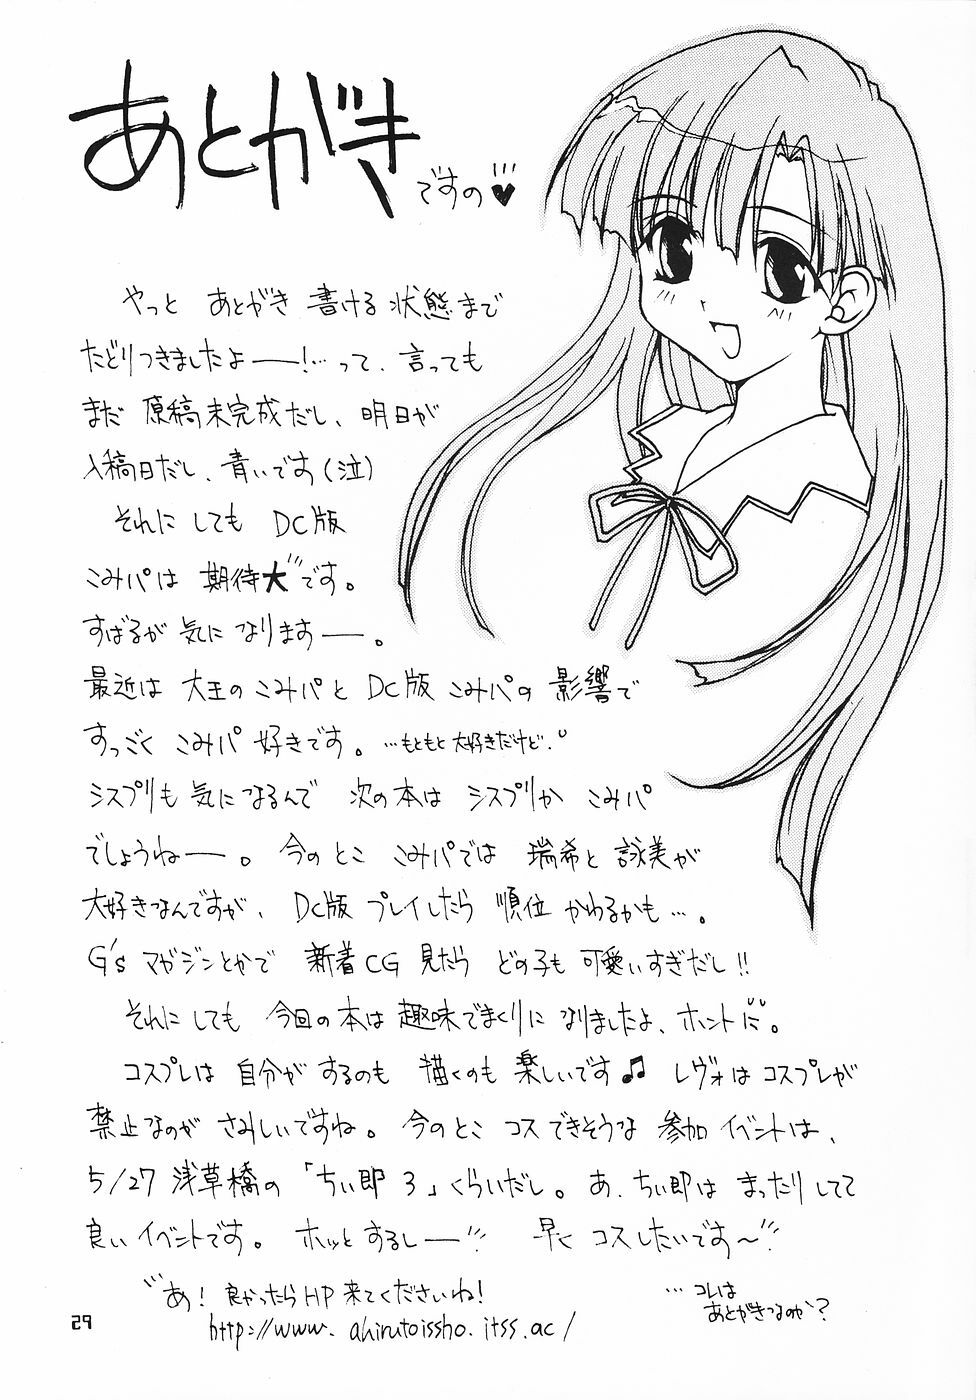 あとがき
ですの♥
やっと あとがき 書ける 状態まで
たどりつきましたよ——!…って、言っても
まだ 原稿未完成だし、明日が
入稿日だし、青いです(泣)
それにしても DC版
こみパは 期待大です。
すばるが 気に なります——。
最近は 大王の こみパと DC版 こみパの 影響で
すっごく こみパ 好きです。…もともと 大好きだけど。
シスプリも 気に なるんで 次の本は シスプリか こみパ
でしょうね——。今のとこ こみパでは 瑞希と 詠美が
大好きなんですが、DC版 プレイしたら 順位 かわるかも…。
G'sマガジンとかで 新着CG 見たら どの子も 可愛いすぎだし!!
それにしても 今回の本は 趣味でまくりに なりましたよ、ホントに。
コスプレは 自分が するのも 描くのも 楽しいです♫ レヴォは コスプレが
禁止なのが さみしいですね。今のとこ コス できそうな 参加 イベントは、
5/27 浅草橋の 「ちぃ即 3」くらいだし。あ、ちぃ即は まったりしてて
良い イベントです。ホッと するし—— 早く コス したいです〜
あ! 良かったら HP 来てくださいね!
http://www.ahirutoissho.itss.ac/
…コレは
あとがきなのか?
29